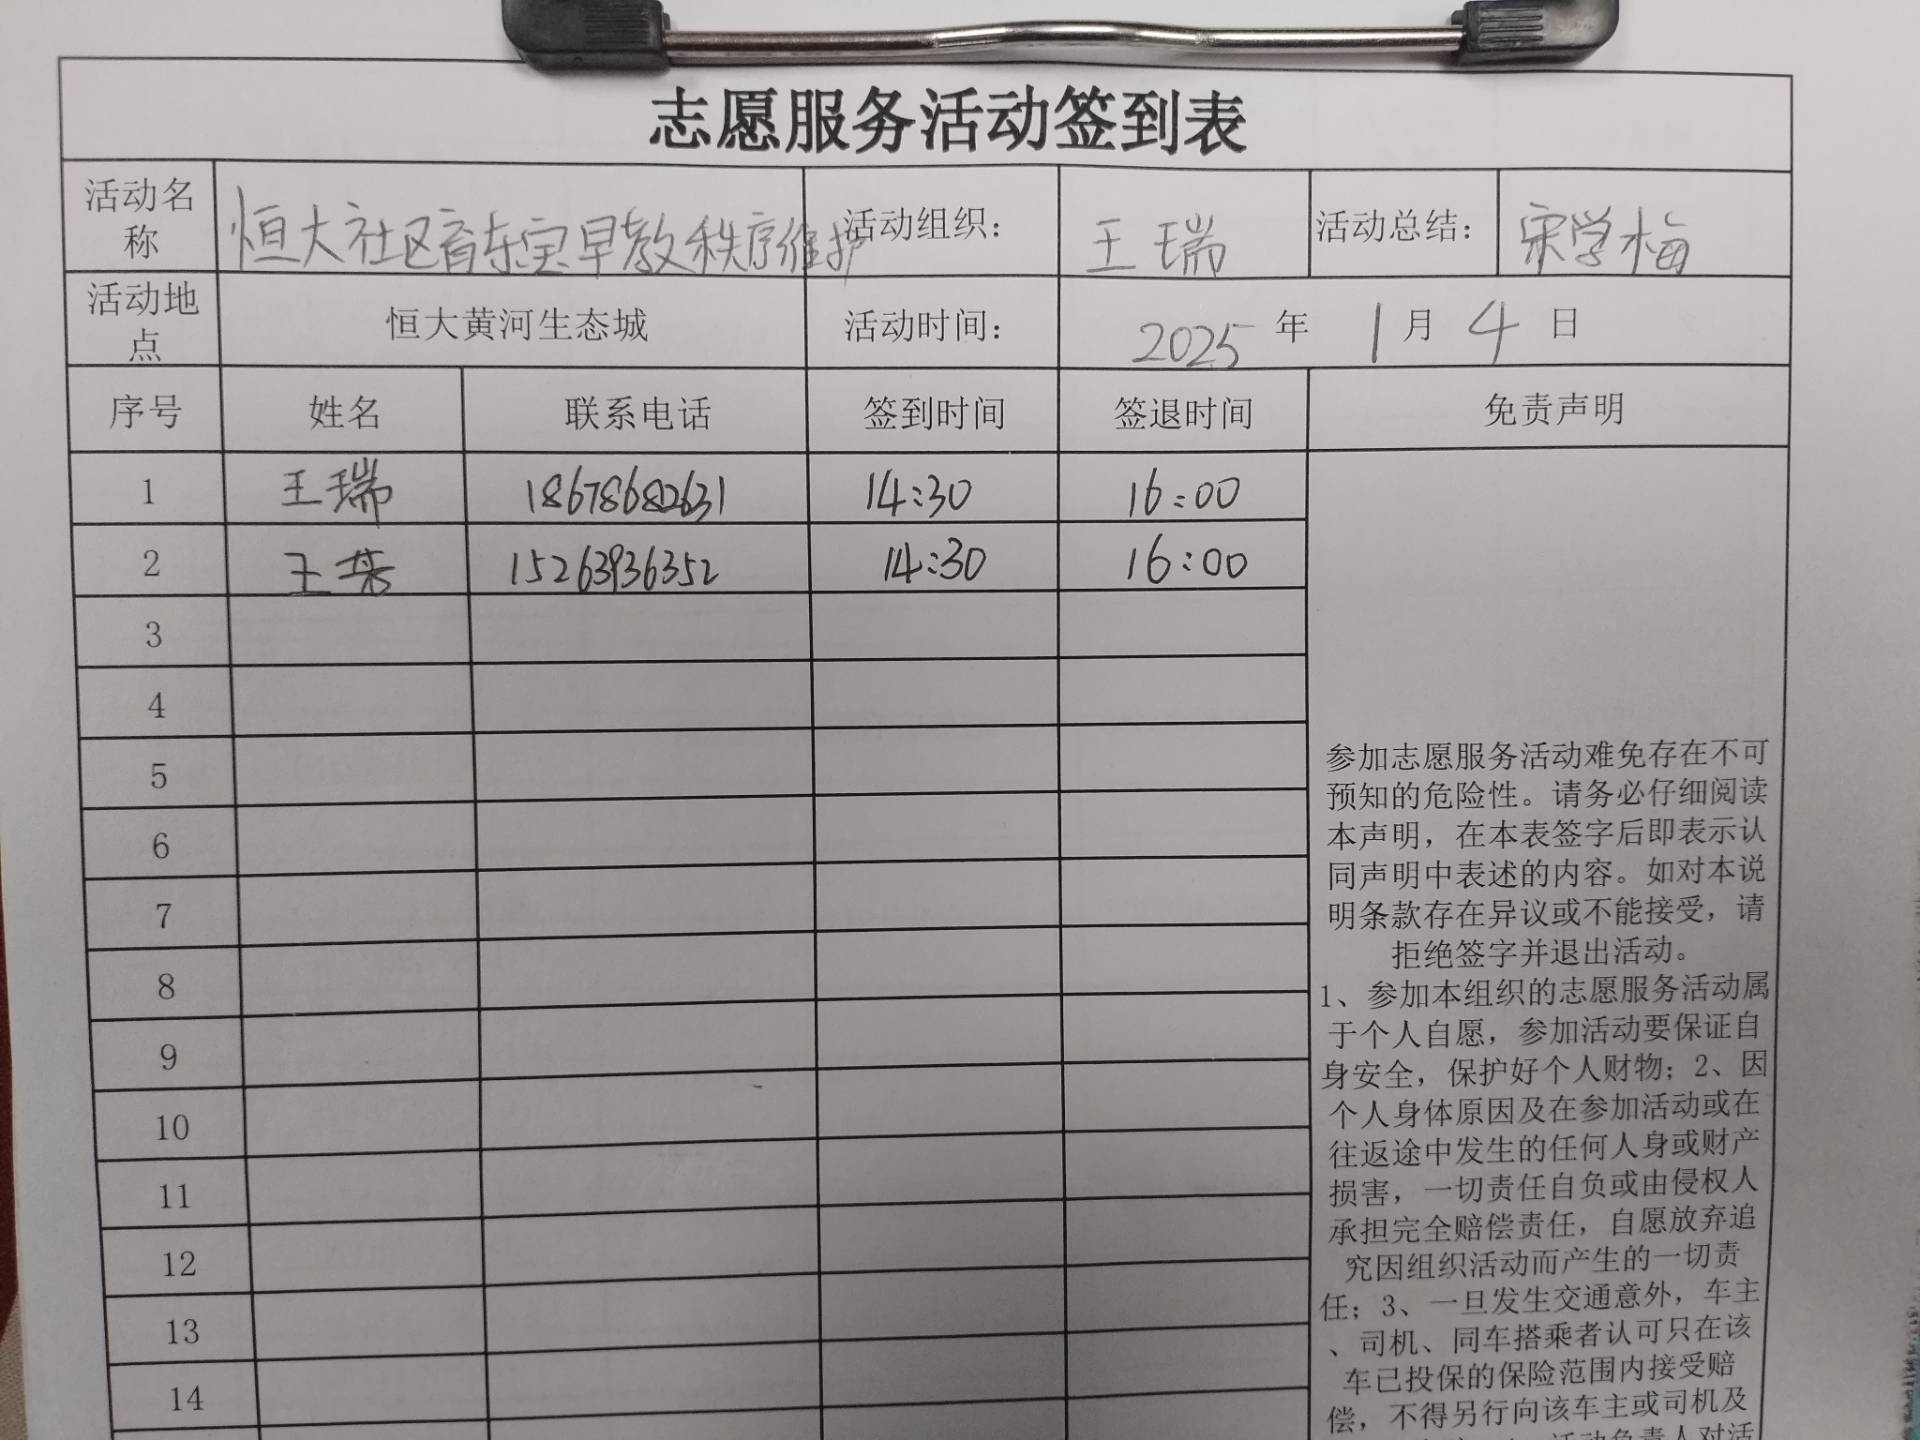 志愿服务活动签到表
活动名称 恒大社区育东宝早教秩序维护 活动组织： 王瑞 活动总结： 宋学梅
活动地点 恒大黄河生态城 活动时间： 2025 年 1 月 4 日
序号 姓名 联系电话 签到时间 签退时间 免责声明
1 王瑞 18678682631 14:30 16:00
2 王 15263936352 14:30 16:00
3
4
5
6
7
8
9
10
11
12
13
14
参加志愿服务活动难免存在不可
预知的危险性。请务必仔细阅读
本声明，在本表签字后即表示认
同声明中表述的内容。如对本说
明条款存在异议或不能接受，请
拒绝签字并退出活动。
1、参加本组织的志愿服务活动属
于个人自愿，参加活动要保证自
身安全，保护好个人财物；2、因
个人身体原因及在参加活动或在
往返途中发生的任何人身或财产
损害，一切责任自负或由侵权人
承担完全赔偿责任，自愿放弃追
究因组织活动而产生的一切责
任；3、一旦发生交通意外，车主
、司机、同车搭乘者认可只在该
车已投保的保险范围内接受赔
偿，不得另行向该车主或司机及
活动负责人对活